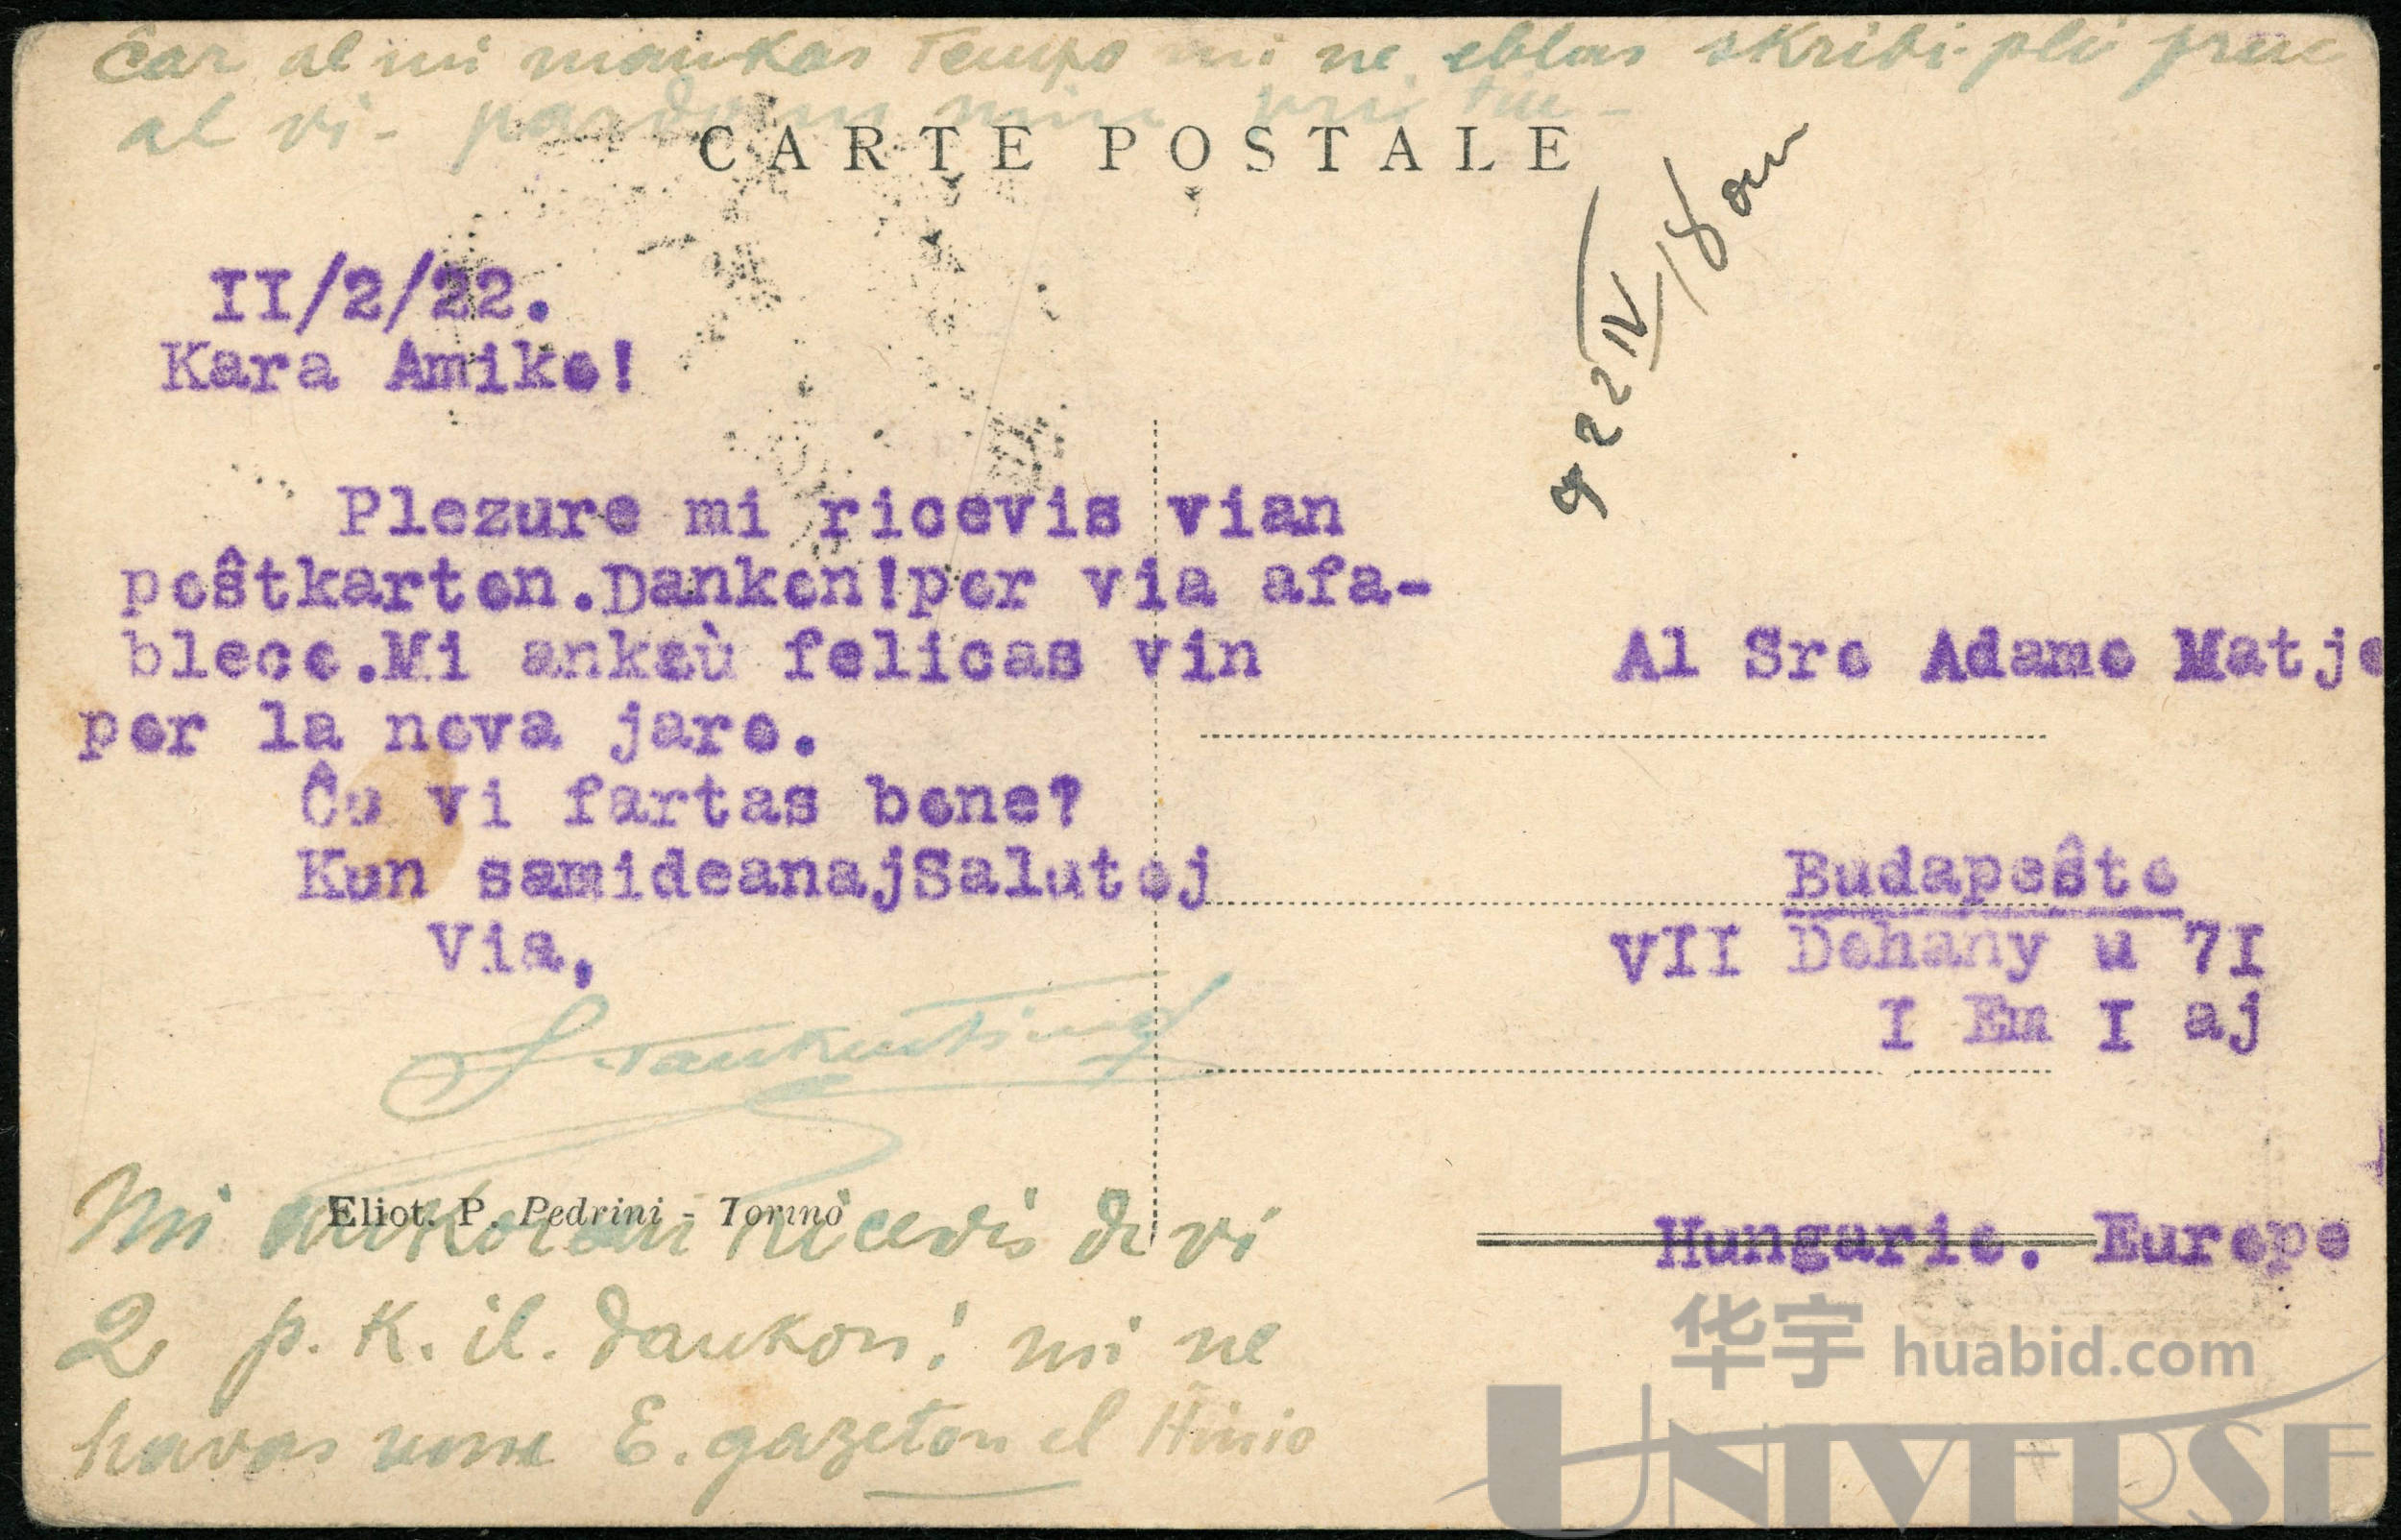 ĉar al mi mankas tempo mi ne eblas skribi pli
al vi - pardonu min pri tio -
CARTE POSTALE
922 IV/18
II/2/22.
Kara Amiko!
Plezure mi ricevis vian
poŝtkarton.Dankon!por via afa-
bleco.Mi ankaù felicas vin
por la nova jaro.
Ĉu vi fartas bone?
Kun samideanajSalutoj
Via,
Al Sro Adamo Matje
Budapeŝto
VII Dohany u 7I
I Em I aj
Hungario. Europo
Eliot. P. Pedrini - Torino
Mi ankoraŭ ricevis de vi
2 p. K. il. dankon! mi ne
havas nune E. gazeton el Ĥinio
华宇 huabid.com
UNIVERSE